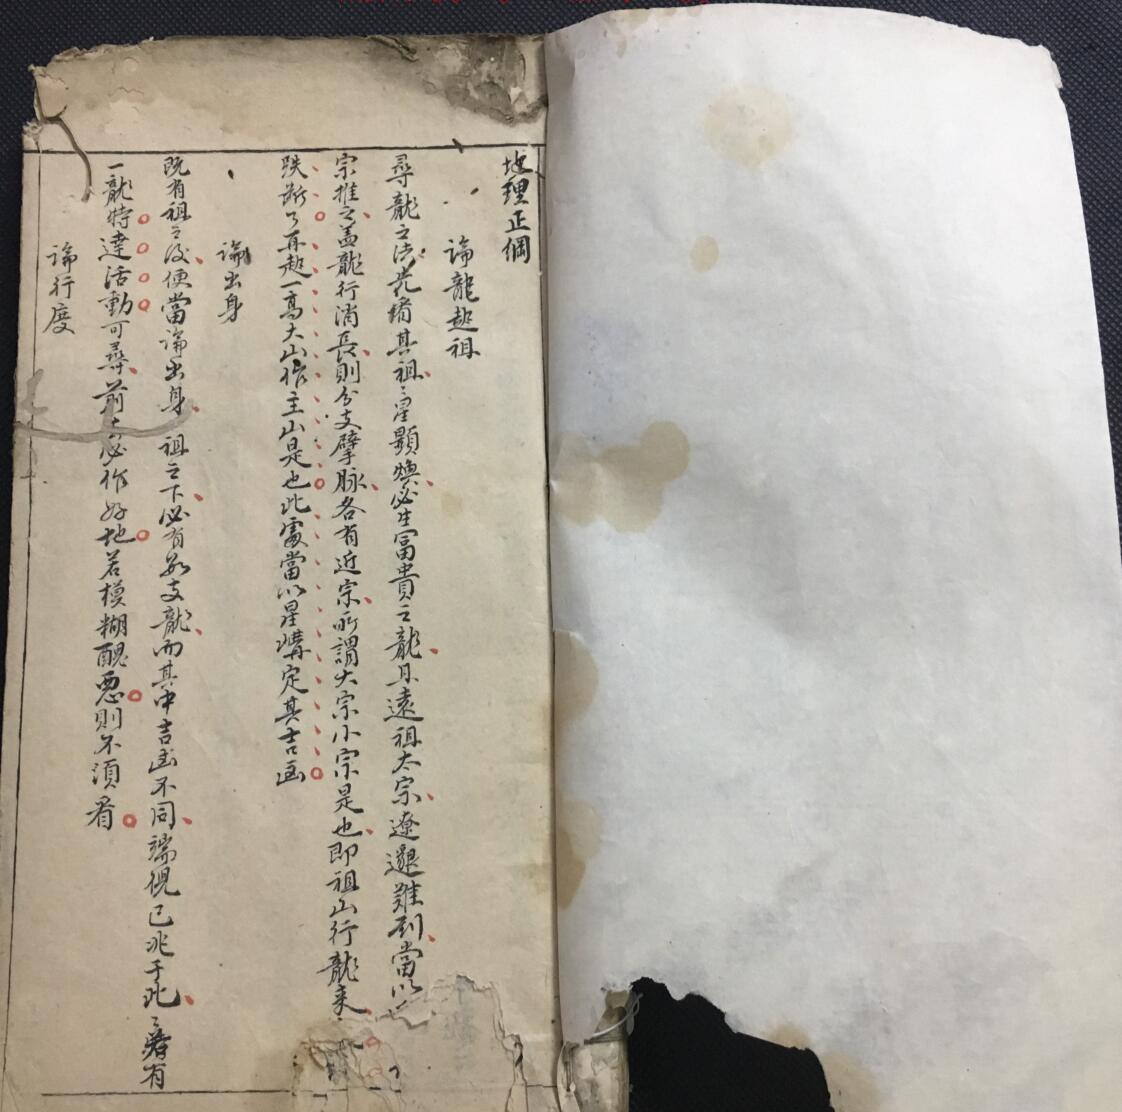 地理正綱
論龍起祖
尋龍之法先猪其祖祖星顯煥必生冨貴之龍且遠祖太宗遼邈難到當以
宗推之盖龍行消長則分支擘脉各有近宗所謂大宗小宗是也即祖山行龍来
跌斷了再起一高大山作主山是也此處當以星搆定其吉凶
論出身
既有祖之後便當論出身祖之下必有数支龍而其中吉凶不同端倪已兆于此此若有
一龍特達活動可尋前去必作好地若模糊醜惡則不須看
論行度